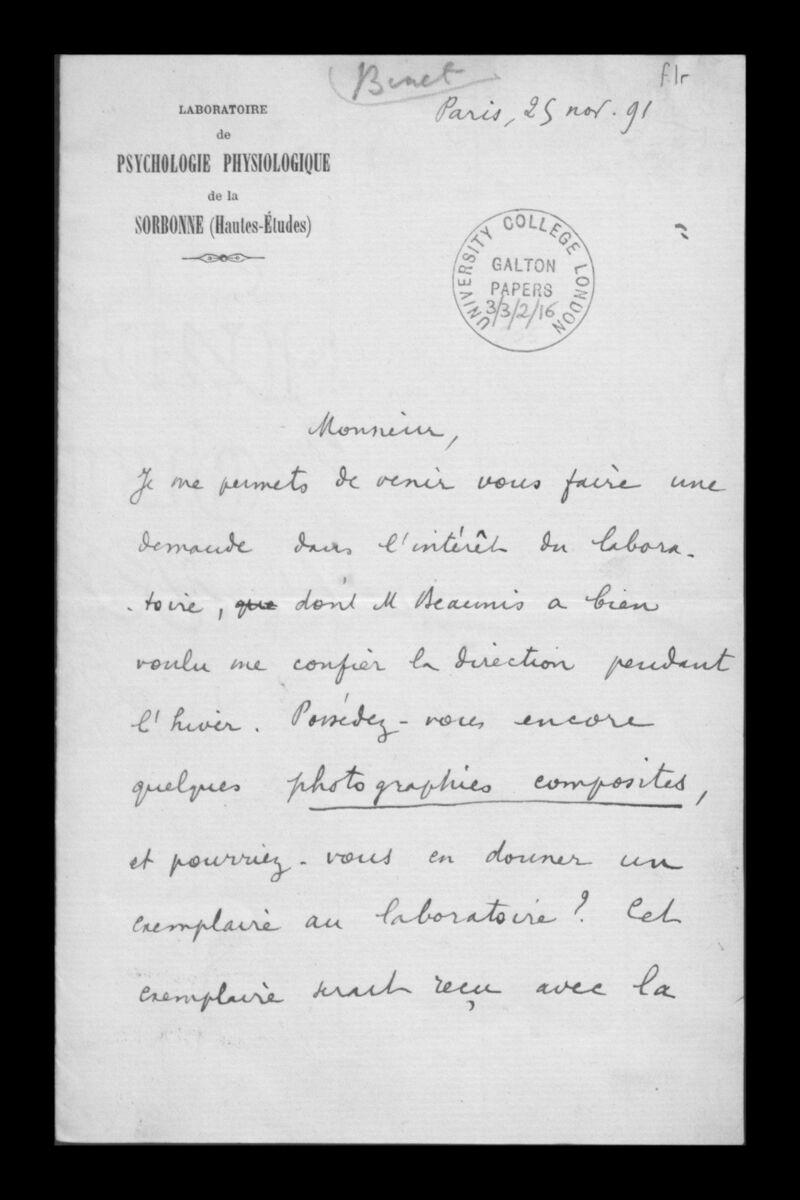 Binet
f.1r
LABORATOIRE
de
PSYCHOLOGIE PHYSIOLOGIQUE
de la
SORBONNE (Hautes-Études)
Paris, 25 nov. 91
UNIVERSITY COLLEGE LONDON
GALTON
PAPERS
3/3/2/16
Monsieur,
Je me permets de venir vous faire une
demande dans l'intérêt du labora-
-toire, que dont M Beaunis a bien
voulu me confier la direction pendant
l'hiver. Possédez-vous encore
quelques photographies composites,
et pourriez-vous en donner un
exemplaire au laboratoire? Cet
exemplaire serait reçu avec la